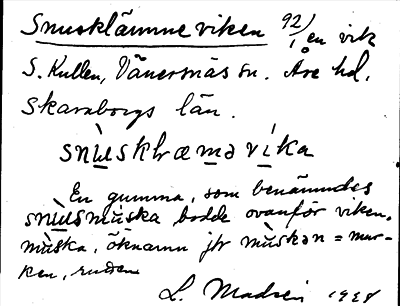 Snusklämmeviken 92/1, en vik
S. Kullen, Vänersnäs sn. Åse hd.
Skaraborgs län.
snùsklæməvíka
En gumma, som benämndes
snùsmúska bodde ovanför viken.
mùska, öknamn jfr mùskən = mur-
ken, rutten
L. Madsén 1928